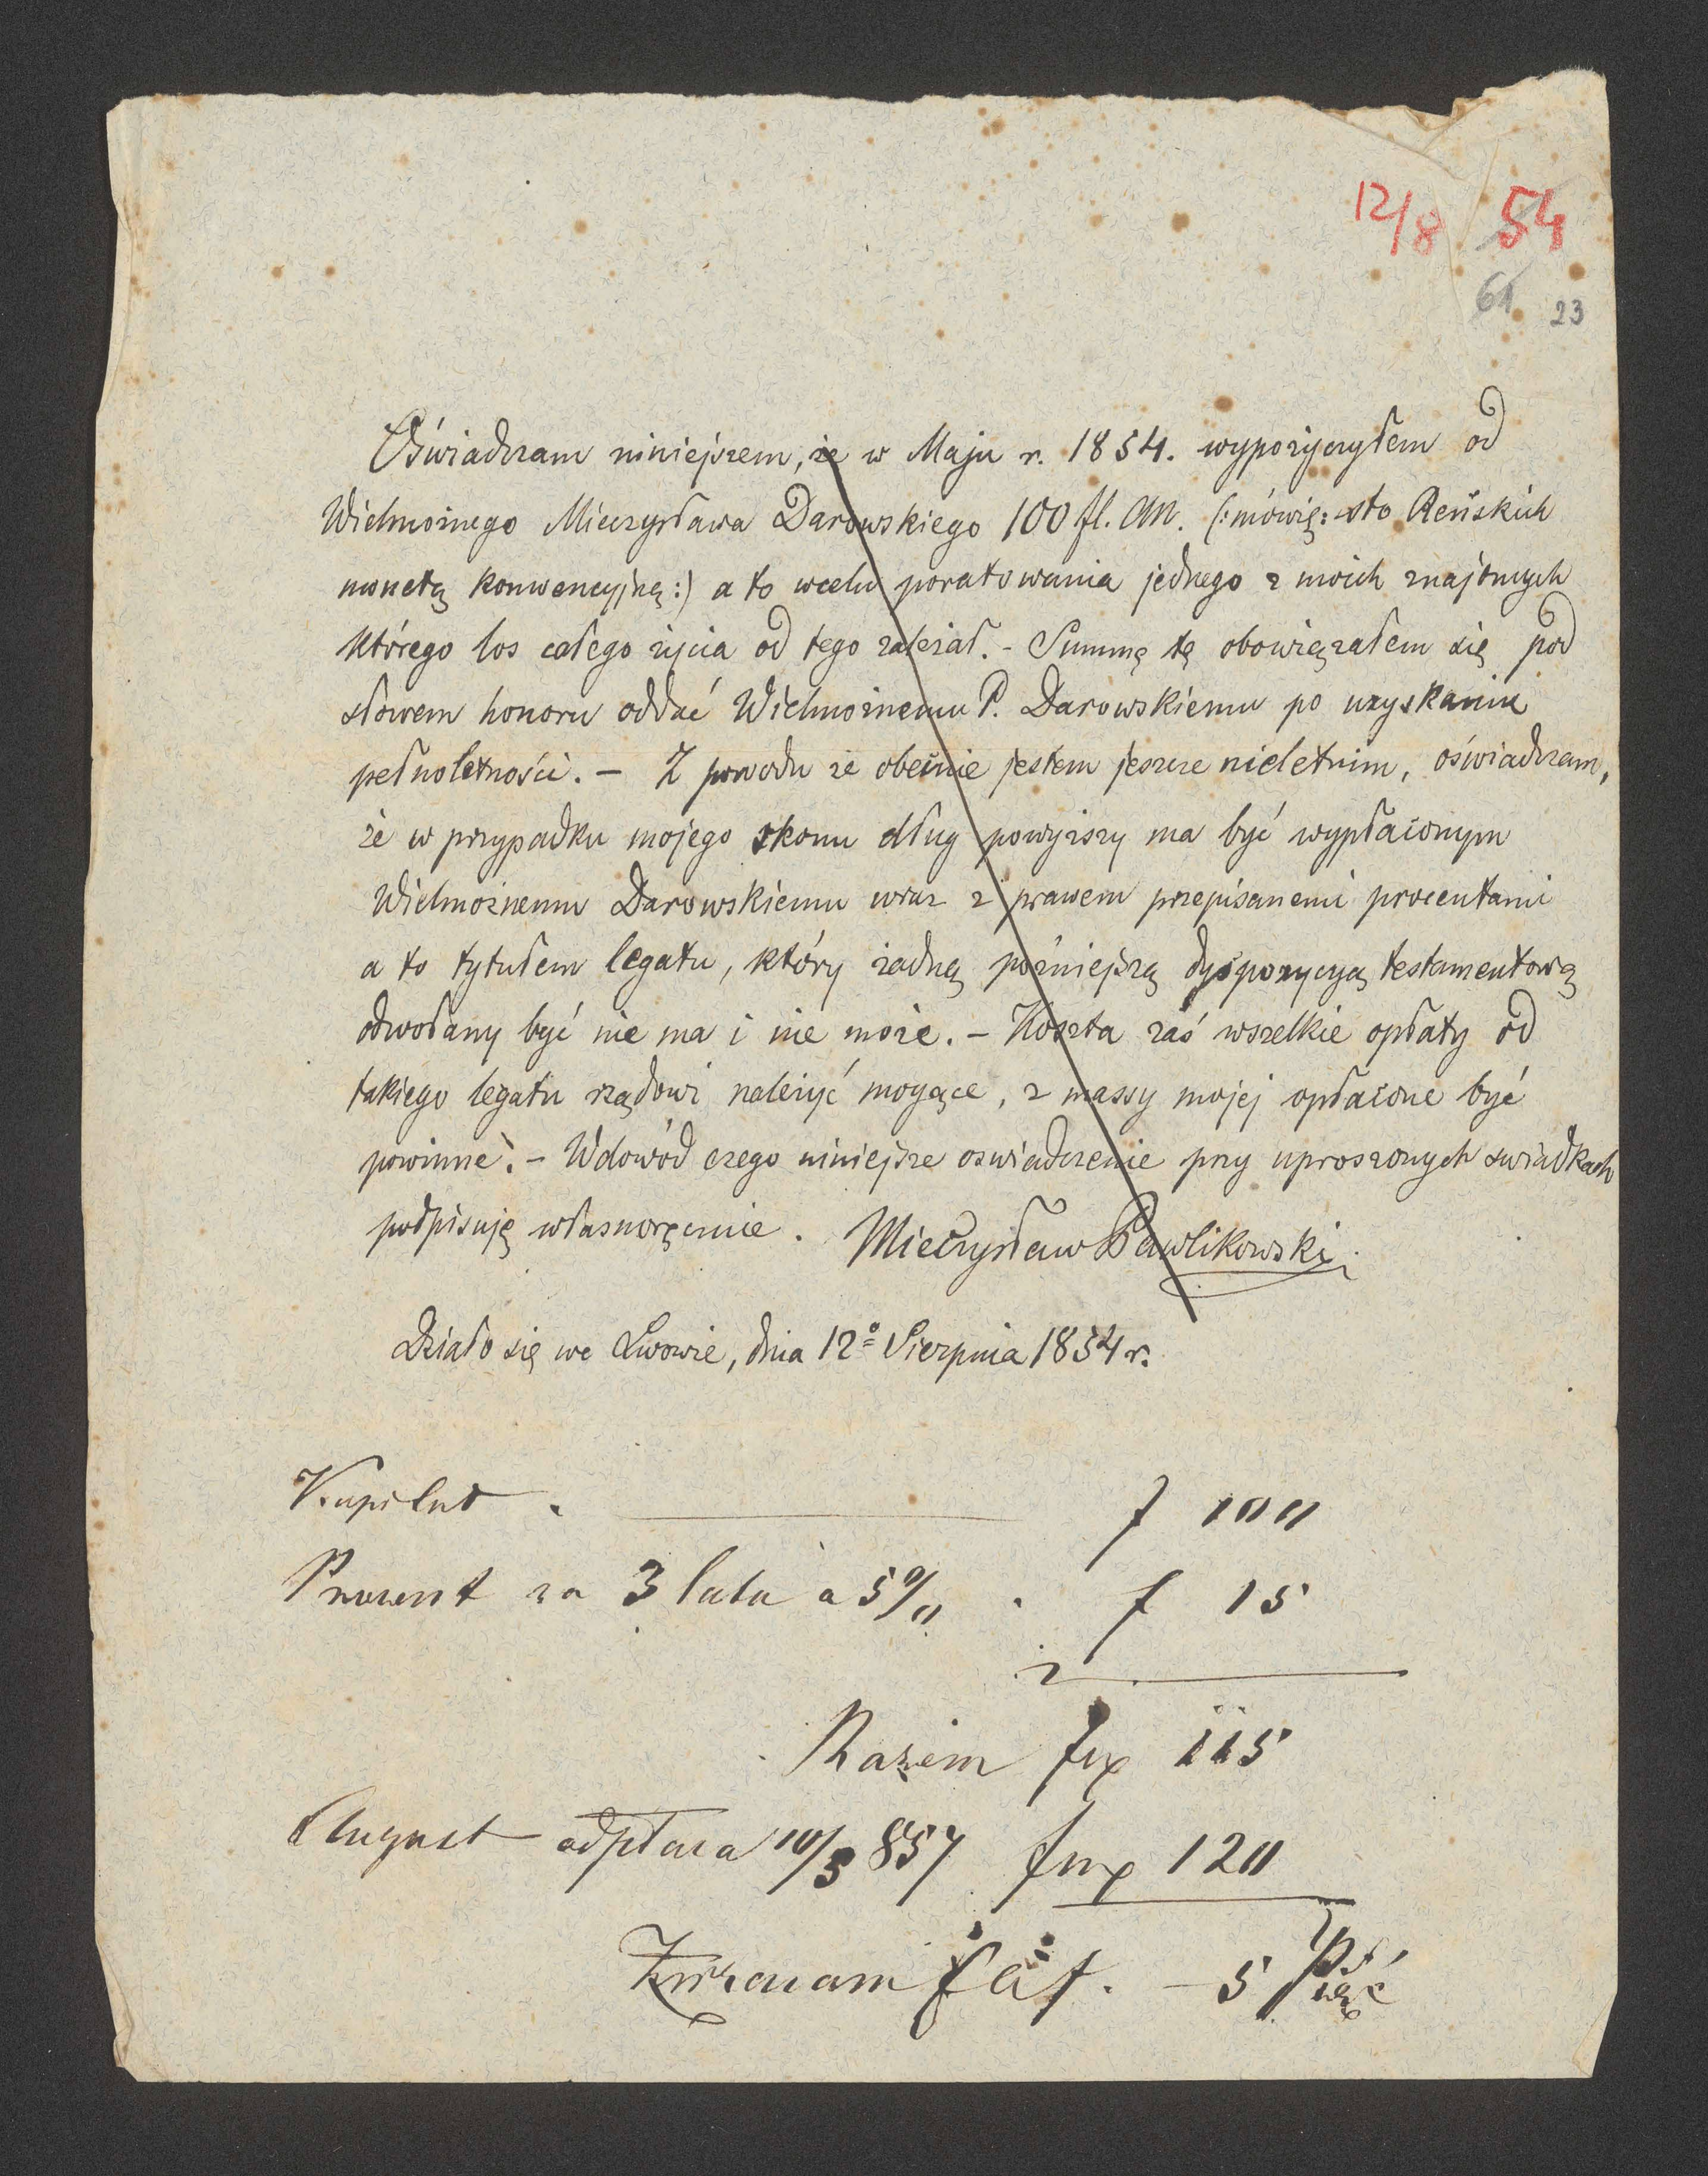 12/8 54
61 23
Oświadczam niniejszem, że w Maju r. 1854. wypożyczyłem od
Wielmożnego Mieczysława Darowskiego 100 fl. CM. (: mówię: sto Reńskich
monetą konwencyjną :) a to wcelu poratowania jednego z moich znajomych
którego los całego życia od tego zależał. - Summę tę obowiązałem się pod
słowem honoru oddać Wielmożnemu P. Darowskiemu po uzyskaniu
pełnoletności. - Z powodu że obecnie jestem jeszcze nieletnim, oświadczam,
że w przypadku mojego skonu dług powyższy ma być wypłaconym
Wielmożnemu Darowskiemu wraz z prawem przepisanemi procentami
a to tytułem legatu, który żadną późniejszą dyspozycyą testamentową
odwołany być nie ma i nie może. - Koszta zaś wszelkie opłaty od
takiego legatu rządowi należyć mogące, z massy mojej opłacone być
powinne. - Wdowód czego niniejsze oswiadczenie przy uproszonych swiadkach
podpisuję własnoręcznie. Mieczysław Pawlikowski.
Działo się we Lwowie, dnia 12º Sierpnia 1854 r.
Kapitał f 100
Procent za 3 lata a 5 % f 15
Razem 115
August odpłaca 10/5 857 120
Zwracam 5 Pięć